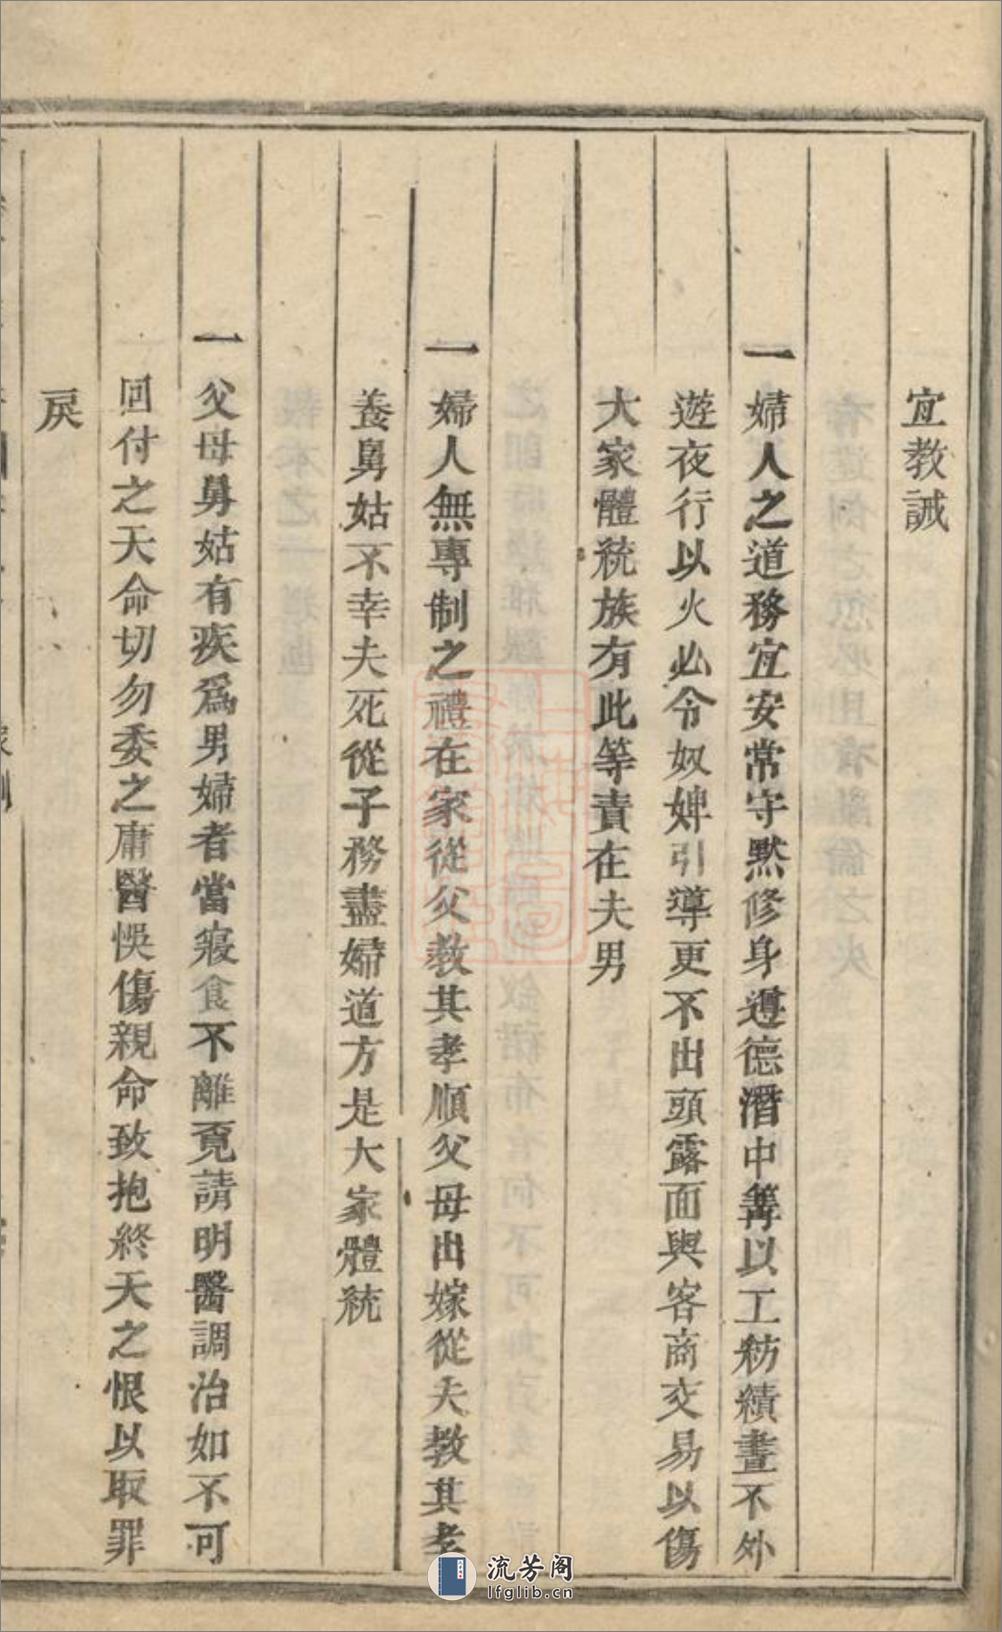 宜教誡
一婦人之道務宜安常守黙修身遵德潛中篝以工紡績晝不外
遊夜行以火必令奴婢引導更不出頭露面與客商交易以傷
大家體統族有此等責在夫男
一婦人無專制之禮在家從父教其孝順父母出嫁從夫教其孝
養舅姑不幸夫死從子務盡婦道方是大家體統
一父母舅姑有疾爲男婦者當寢食不離覔請明醫調治如不可
回付之天命切勿委之庸醫悞傷親命致抱終天之恨以取罪
戾
流芳阁
lfglib.cn